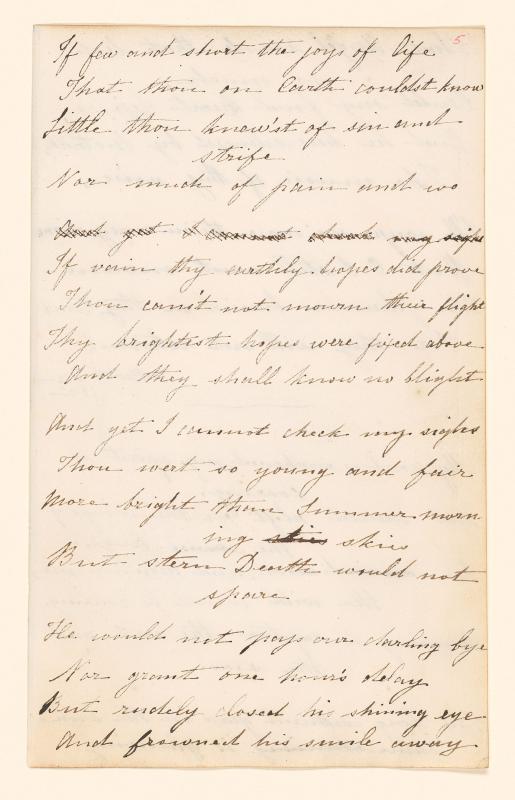 5
If few and short the joys of life
That thou on Earth couldst know
Little thou knew'st of sin and
strife
Nor much of pain and wo
And yet I cannot check my sighs
If vain thy earthly hopes did prove
Thou canst not mourn their flight
Thy brightest hopes were fixed above
And they shall know no blight
And yet I cannot check my sighs
Thou wert so young and fair
More bright than Summer morn
ing skies skies
But stern Death would not
spare
He would not pass our darling bye
Nor grant one hour's delay
But rudely closed his shining eye
And frowned his smile away